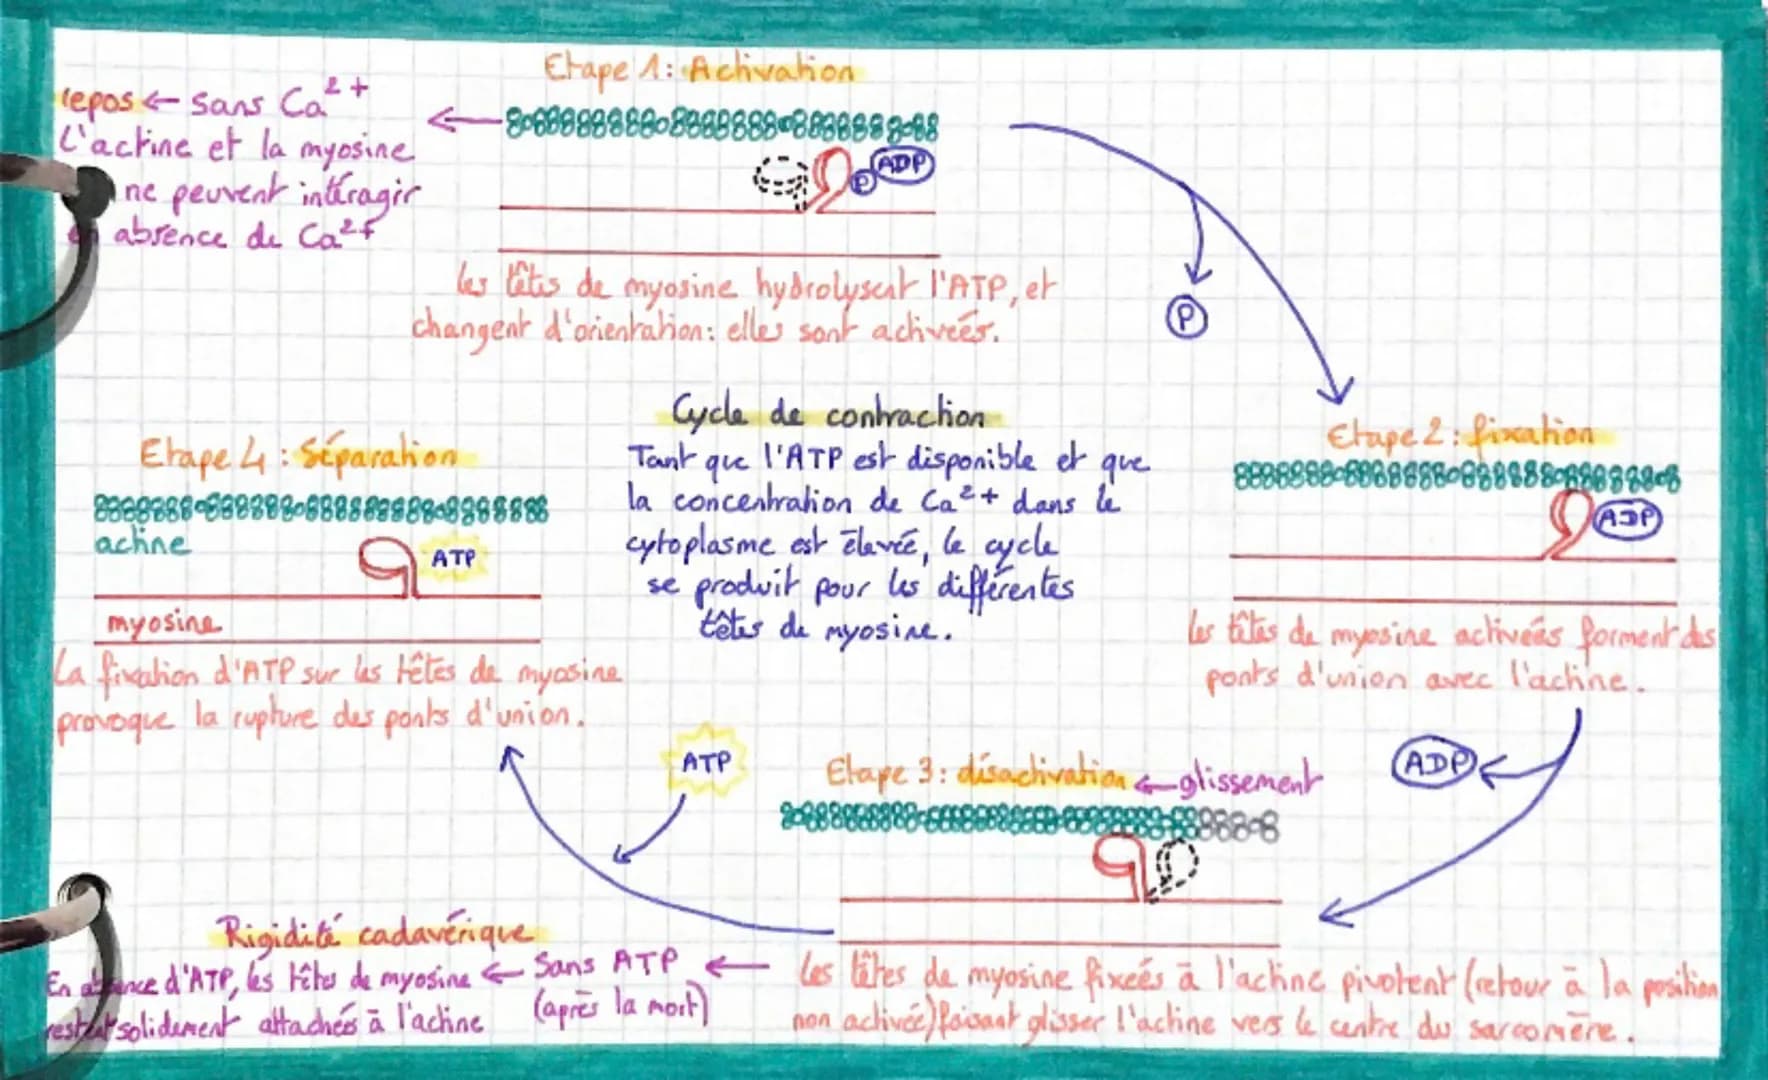 Etape 1: Activation
repos ← sans Ca²⁺
L'actine et la myosine
ne peuvent intéragir
en absence de Ca²⁺
P
ADP
Les têtes de myosine hydrolysent l'ATP, et
changent d'orientation: elles sont activeés.
P
Cycle de contraction
Tant que l'ATP est disponible et que
la concentration de Ca²⁺ dans le
cytoplasme est élevée, le cycle
se produit pour les différentes
têtes de myosine.
Etape 2: fixation
ADP
Les têtes de myosine activeés forment des
ponts d'union avec l'actine.
ADP
Etape 3: désactivation ← glissement
Les têtes de myosine fixeés à l'actine pivotent (retour à la position
non activée) faisant glisser l'actine vers le centre du sarcomère.
ATP
Etape 4: Séparation
actine
ATP
myosine
La fixation d'ATP sur les têtes de myosine
provoque la rupture des ponts d'union.
Sans ATP ←
(après la mort)
Rigidité cadavérique
En absence d'ATP, les têtes de myosine ←
restent solidement attachées à l'actine